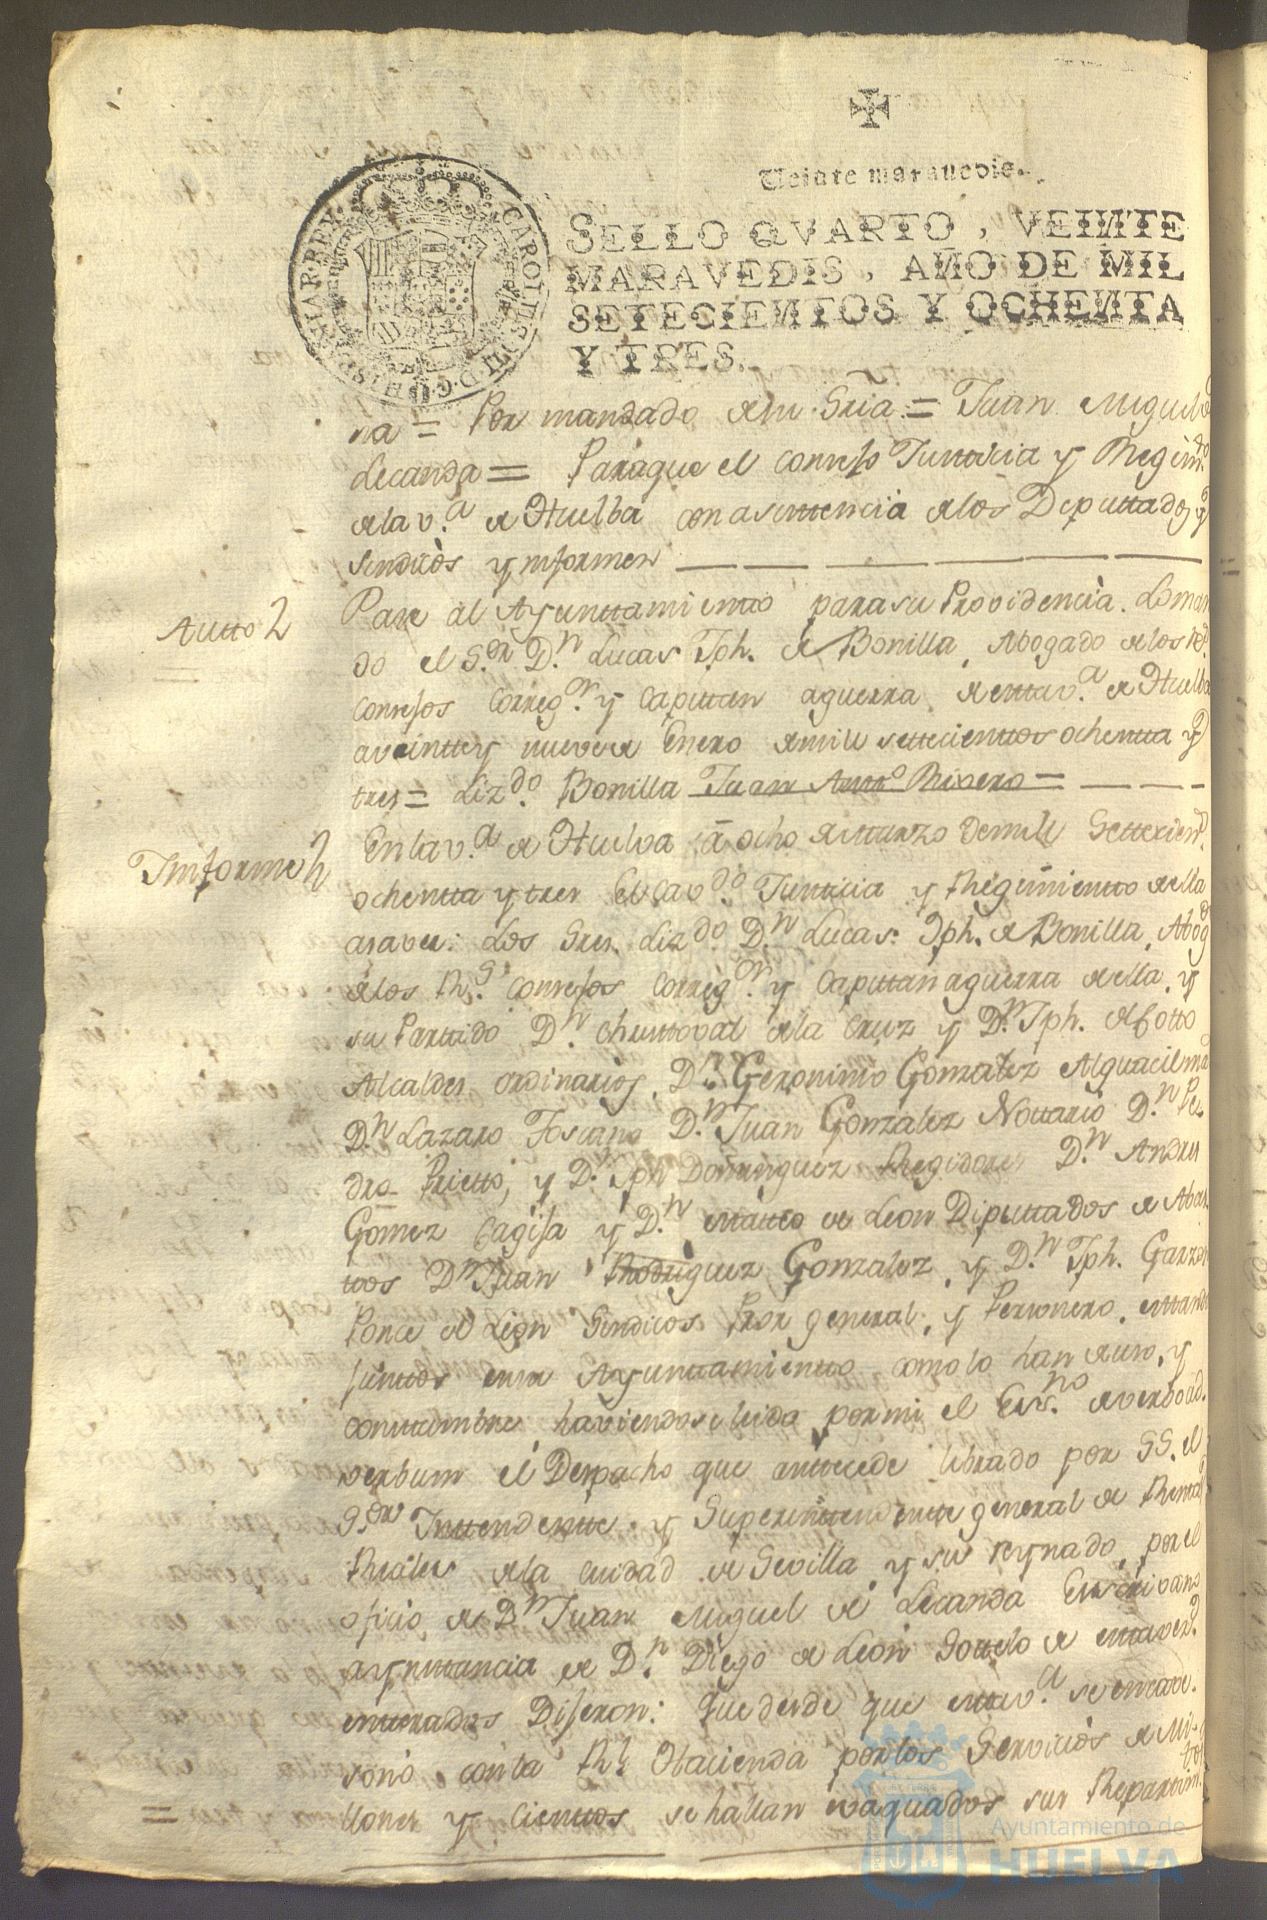 Veinte maravedis.
SELLO QVARTO, VEINTE
MARAVEDIS, AÑO DE MIL
SETECIENTOS Y OCHENTA
Y TRES.
CAROLUS III D. G. HISPANIAR REX
na = Por mandado de su Sria = Juan Miguel de
Lecanda = Paraque el consejo Justicia y Regim.to
de la v.a de Huelba con asisttencia de los Deputtados y
Sindicos ynformen
Autto 2
Pase al Ayunttamientto para su Providencia. Lo man
do el S.or D.n Lucas Jph. de Bonilla, Abogado de los R.s
consejos Correg.or y Capittan aguerra de estta v.a de Huelba
a veintte y nueve de Enero de mill settecienttos ochentta y
tres = Liz.do Bonilla Juan Antt.o Rivero =
Ynforme 2
En la v.a de Huelva á ocho de Marzo de mill Settecient.s
ochentta y tres El Cav.do Justicia y Regimientto de ella
asaver: Los Sres. Liz.do D.n Lucas Jph. de Bonilla, Abog.do
de los R.s consejos Correg.or y Capittan aguerra de ella, y
su Parttido D.n Christoval de la Cruz y D.n Jph. de Cotto
Alcaldes ordinarios, D.n Geronimo Gonzalez Alguacil m.r
D.n Lazaro Toscano D.n Juan Gonzalez Nottario D.n Pe
dro Prietto, y D.n Jph Dominguez Regidores D.n Andres
Gomez Cagisa y D.n Matteo de Leon Diputtados de Abas
ttos D.n Juan Rodriguez Gonzalez, y D.n Jph. Garzon
Ponce de León Sindicos Pror general, y Personero, esttando
junttos en su Ayunttamientto como lo han de uso, y
costtumbre haviendose leida por mi el Ess.no de verboad
verbum el Despacho que anttecede librado por SS. el
S.or Inttendentte y Superinttendentte general de Rentas
Reales de la ciudad de Sevilla y su reynado, por el
oficio de D.n Juan Miguel de Lecanda Escrivano
aynsttancia de D.n Diego de León Sottelo de estta vez.d
entterados Dijeron: Que desde que estta v.a se encave
sonó con la R.l Hacienda por los Servicios de Mi
= llones y Cienttos se hallan evaquados sus Repartim.tos
Ayuntamiento de
HUELVA